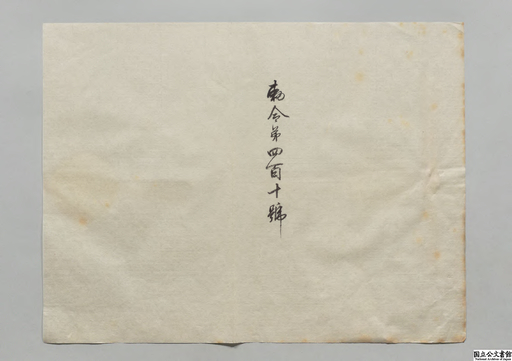 勅令第四百十號
国立公文書館
National Archives of Japan